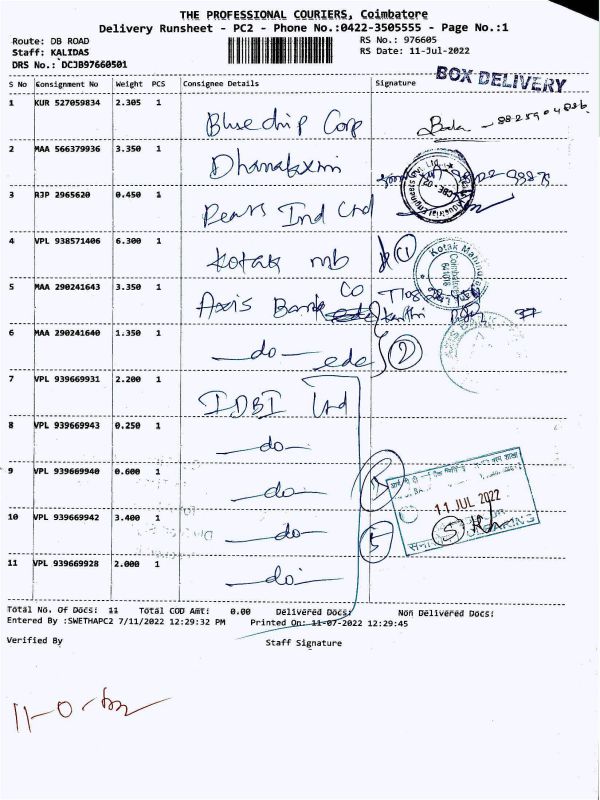 THE PROFESSIONAL COURIERS, Coimbatore
Delivery Runsheet - PC2 - Phone No.:0422-3505555 - Page No.:1
Route: DB ROAD
RS No.: 976605
Staff: KALIDAS
RS Date: 11-Jul-2022
DRS No.: DCJB97660501
BOX DELIVERY
S No Consignment No Weight PCS Consignee Details Signature
1 KUR 527059834 2.305 1 Bluechip Corp Bala
2 MAA 566379936 3.350 1 Dhanalaxmi
3 RJP 2965620 0.450 1 Pears Ind Ltd
4 VPL 938571406 6.300 1 Kotak mb 1
5 MAA 290241643 3.350 1 Axis Bank Co
6 MAA 290241640 1.350 1 do 2
7 VPL 939669931 2.200 1 IDBI Ltd
8 VPL 939669943 0.250 1 do
9 VPL 939669940 0.600 1 do
11 JUL 2022
10 VPL 939669942 3.400 1 do 5
11 VPL 939669928 2.000 1 do
Total No. Of Docs: 11 Total COD Amt: 0.00 Delivered Docs: Non Delivered Docs:
Entered By :SWETHAPC2 7/11/2022 12:29:32 PM Printed On: 11-07-2022 12:29:45
Verified By Staff Signature